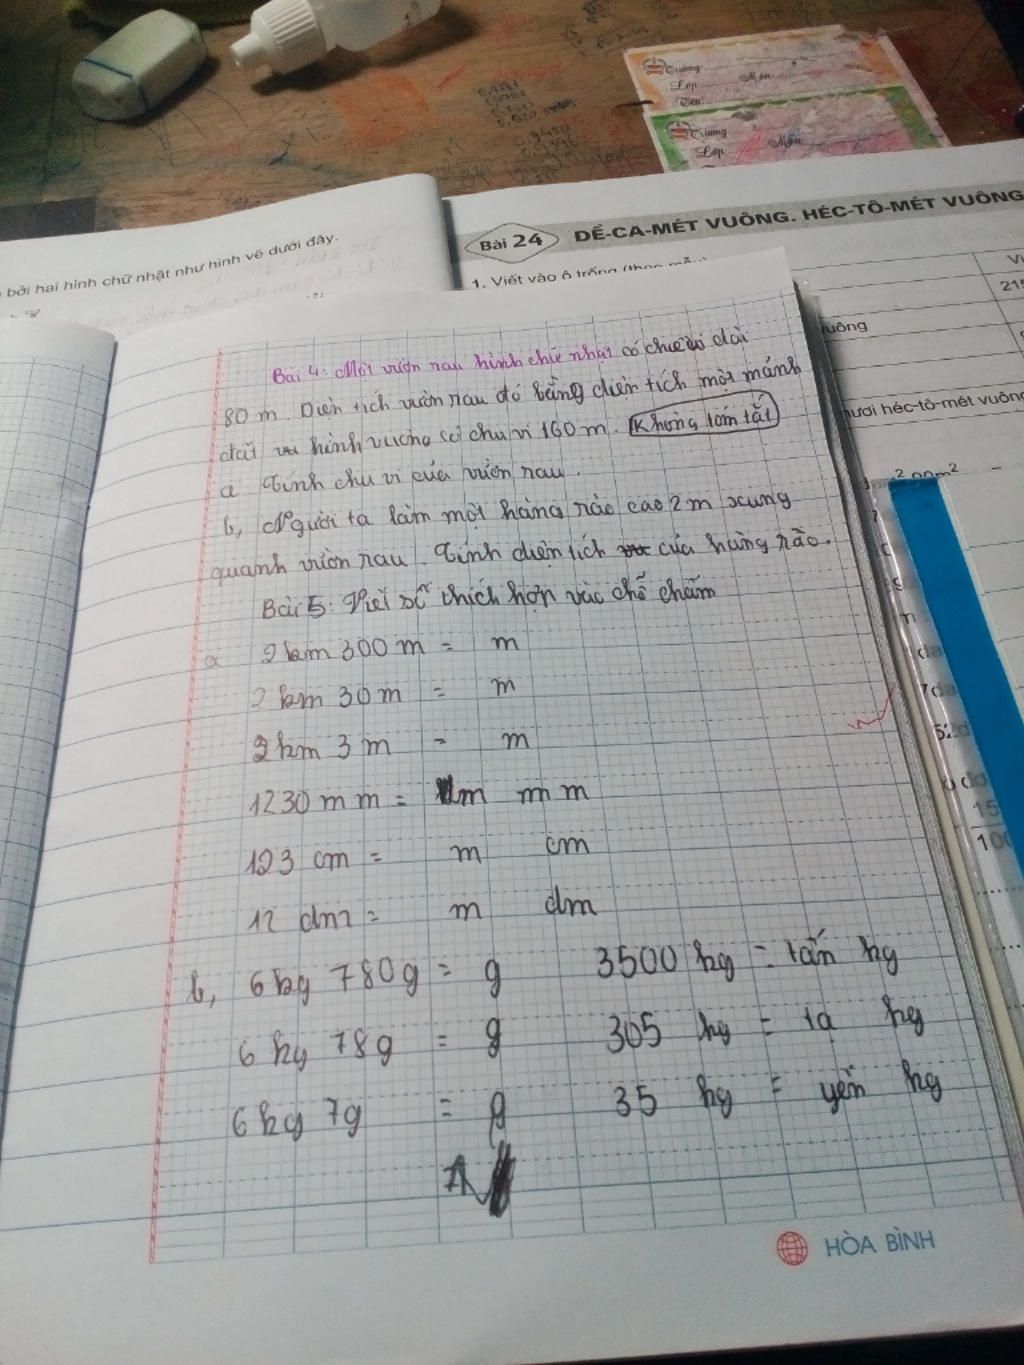 Trường
Lớp Môn
Tên
Trường
Lớp Môn
bởi hai hình chữ nhật như hình vẽ dưới đây.
Bài 24 ĐỀ-CA-MÉT VUÔNG. HÉC-TÔ-MÉT VUÔNG
1. Viết vào ô trống (theo mẫu)
Vi
215
uông
ươi héc-tô-mét vuông
Bài 4: Một vườn rau hình chữ nhật có chiều dài
80 m Diện tích vườn rau đó bằng diện tích một mảnh
đất hình vuông có chu vi 160 m. Không tóm tắt
a Tính chu vi của vườn rau.
b, Người ta làm một hàng rào cao 2 m xung
quanh vườn rau. Tính diện tích của hàng rào.
Bài 5: Viết số thích hợp vào chỗ chấm
a 2 km 300 m = m
2 km 30 m = m
2 km 3 m = m
1230 mm = m mm
123 cm = m cm
12 dm = m dm
b, 6 kg 780g = g 3500 kg = tấn kg
6 kg 78g = g 305 kg = tạ kg
6 kg 7g = g 35 kg = yến kg
HÒA BÌNH